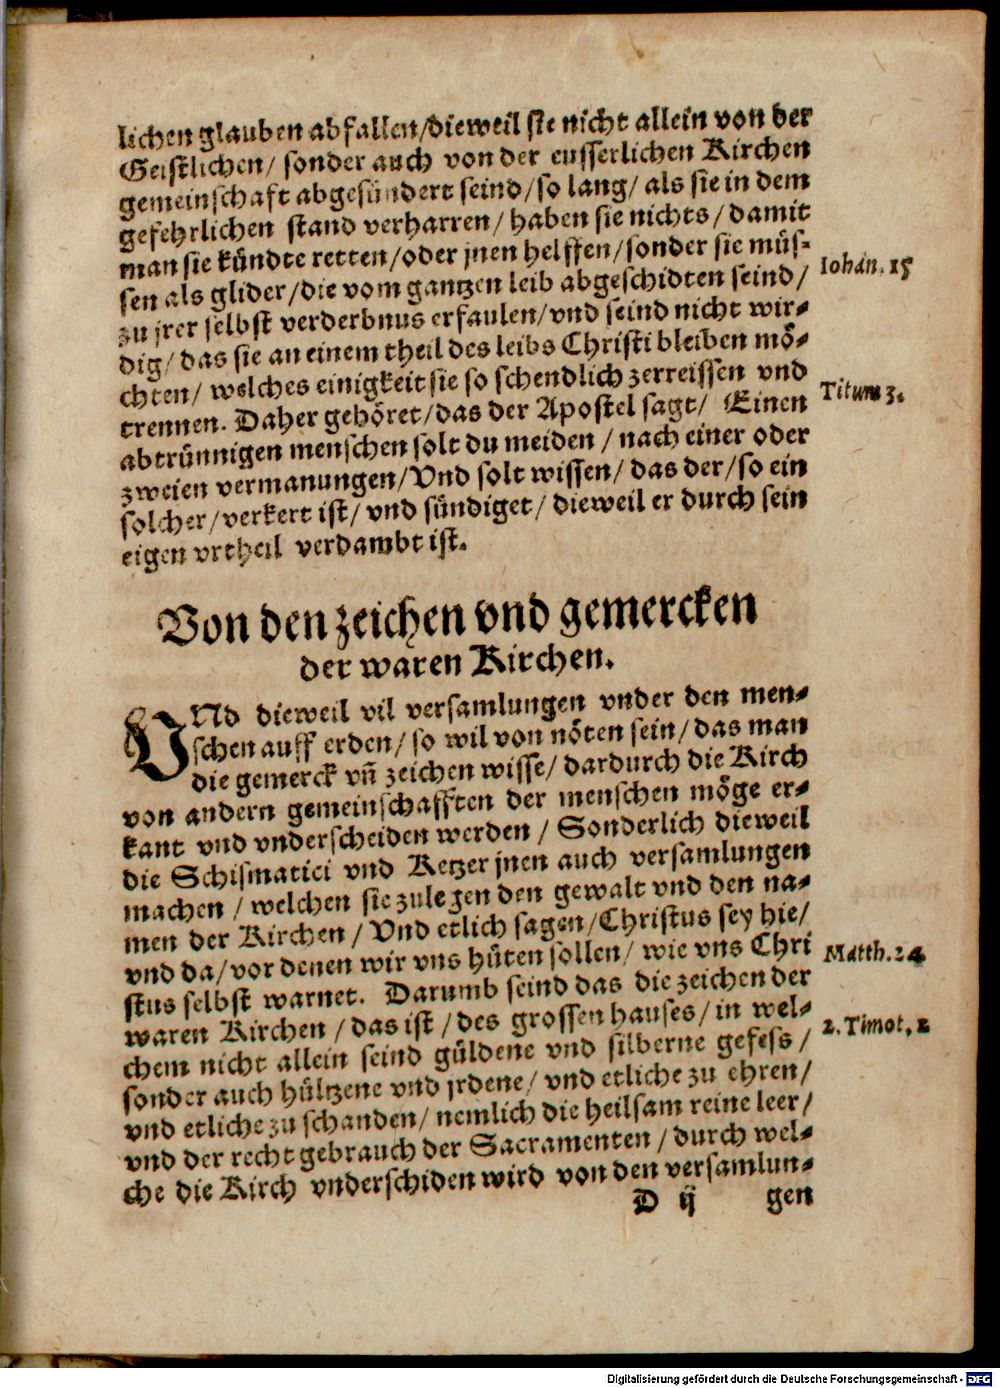 lichen glauben abfallen/dieweil sie nicht allein von der
Geistlichen/ sonder auch von der eusserlichen Kirchen
gemeinschaft abgesündert seind/so lang/ als sie in dem
gefehrlichen stand verharren/haben sie nichts/damit
man sie kündte retten/oder jnen helffen/sonder sie müs-
sen als glider/die vom gantzen leib abgeschidten seind/
Iohan. 15
zu jrer selbst verderbnus erfaulen/vnd seind nicht wir-
dig/das sie an einem theil des leibs Christi bleiben mö-
chten/ welches einigkeit sie so schendlich zerreissen vnd
trennen. Daher gehöret/das der Apostel sagt/ Einen
Titum 3.
abtrünnigen menschen solt du meiden / nach einer oder
zweien vermanungen/Vnd solt wissen/das der/so ein
solcher/verkert ist/vnd sündiget/dieweil er durch sein
eigen vrtheil verdambt ist.
Von den zeichen vnd gemercken
der waren Kirchen.
VNd dieweil vil versamlungen vnder den men-
schen auff erden/so wil von nöten sein/das man
die gemerck vñ zeichen wisse/dardurch die Kirch
von andern gemeinschafften der menschen möge er-
kant vnd vnderscheiden werden / Sonderlich dieweil
die Schismatici vnd Ketzer jnen auch versamlungen
machen / welchen sie zulegen den gewalt vnd den na-
men der Kirchen / Vnd etlich sagen/Christus sey hie/
vnd da/vor denen wir vns hüten sollen/ wie vns Chri
Matth. 24
stus selbst warnet. Darumb seind das die zeichen der
waren Kirchen /das ist /des grossen hauses/in wel-
2. Timot, 2
chem nicht allein seind güldene vnd silberne gefess /
sonder auch hültzene vnd jrdene/ vnd etliche zu ehren/
vnd etliche zu schanden/ nemlich die heilsam reine leer/
vnd der recht gebrauch der Sacramenten /durch wel-
che die Kirch vnderschiden wird von den versamlun-
D ij gen
Digitalisierung gefördert durch die Deutsche Forschungsgemeinschaft - DFG